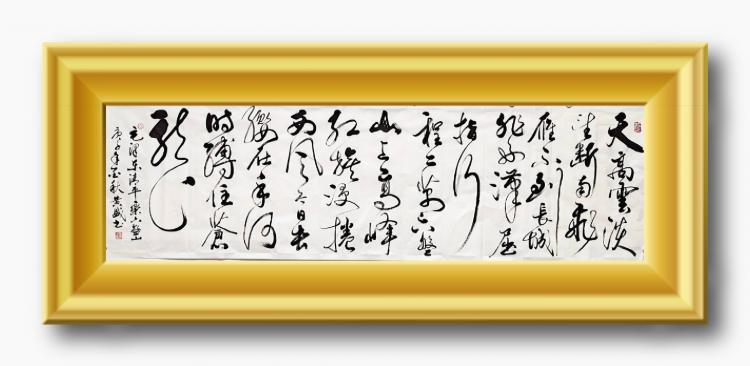 天高雲淡
望断南飛
雁不到長城
非好漢屈
指行
程二萬六盤
山上高峰
红旗漫捲
西風今日長
纓在手何
時縛住蒼
龍
毛澤东清平樂六盤山
庚子年金秋黄书